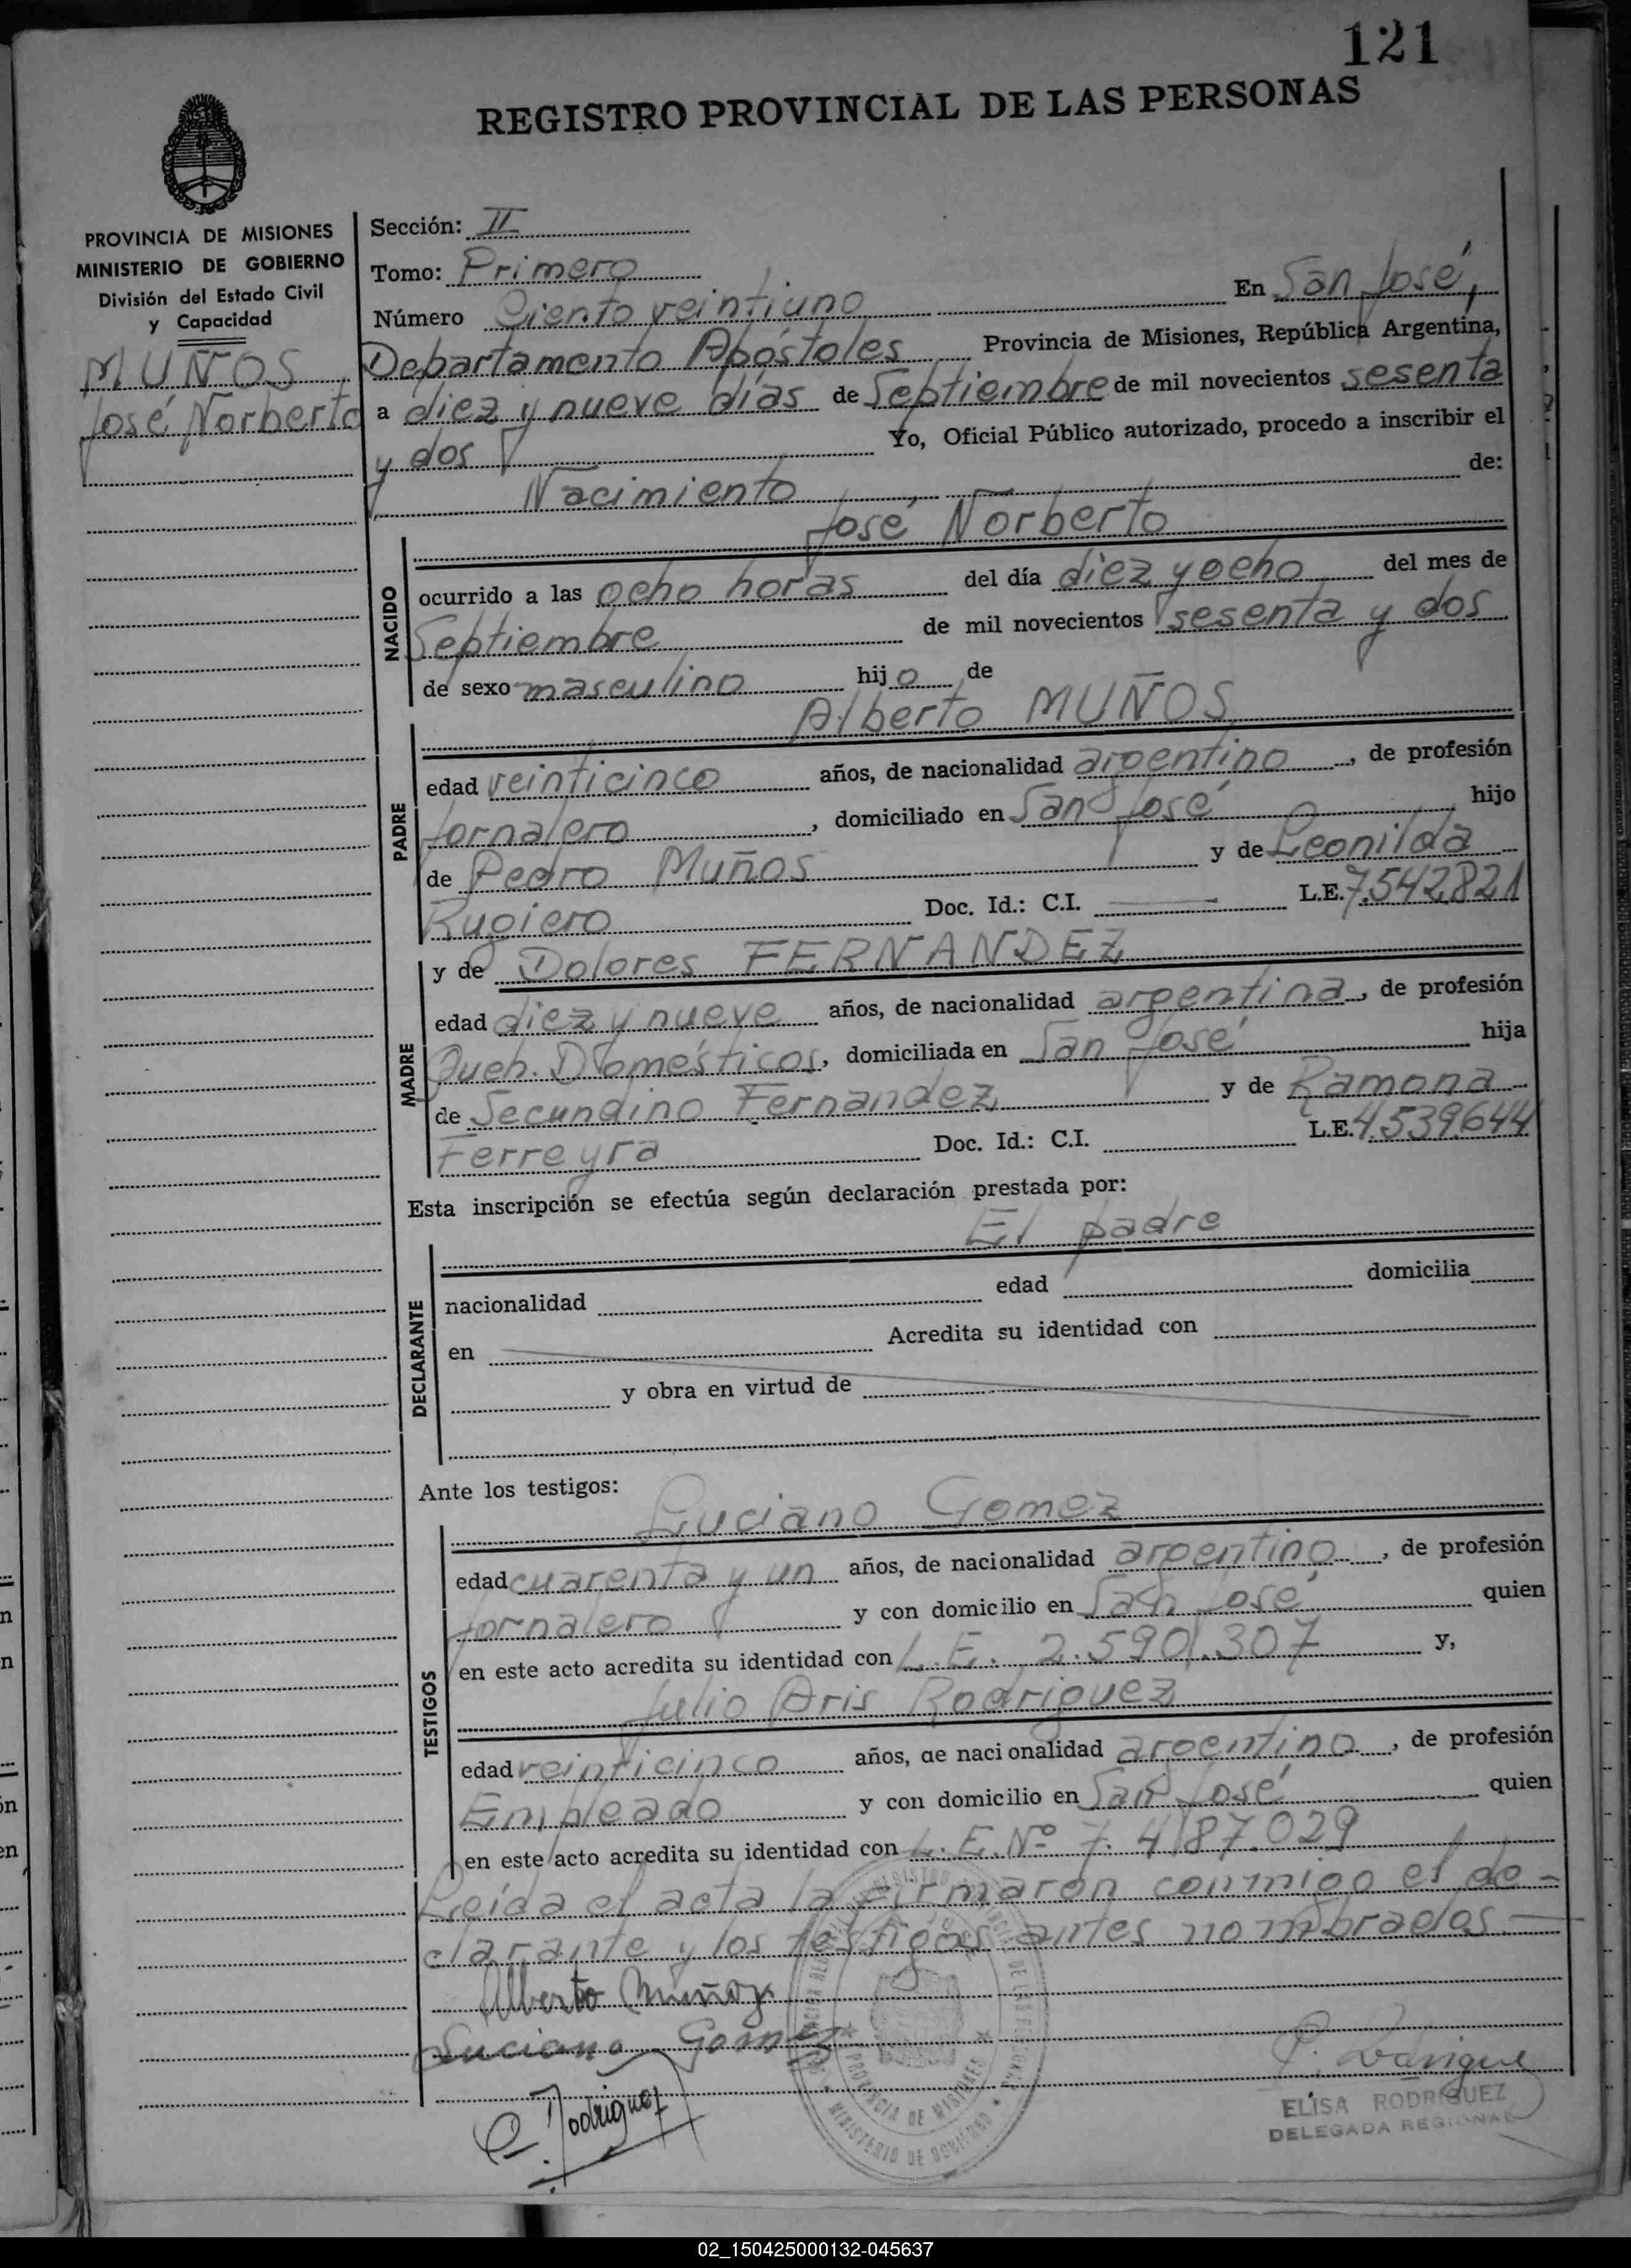 121
REGISTRO PROVINCIAL DE LAS PERSONAS
PROVINCIA DE MISIONES
MINISTERIO DE GOBIERNO
División del Estado Civil
y Capacidad
MUÑOS
José Norberto
Sección: II
Tomo: Primero
Número Ciento veintiuno En San José,
Departamento Apóstoles Provincia de Misiones, República Argentina,
a diez y nueve días de Septiembre de mil novecientos sesenta
y dos Yo, Oficial Público autorizado, procedo a inscribir el
Nacimiento de:
José Norberto
NACIDO
ocurrido a las ocho horas del día diez y ocho del mes de
Septiembre de mil novecientos sesenta y dos
de sexo masculino hijo de
Alberto MUÑOS
PADRE
edad veinticinco años, de nacionalidad argentino, de profesión
Jornalero, domiciliado en San José hijo
de Pedro Muños y de Leonilda
Rugiero Doc. Id.: C.I. L.E. 7.542.821
y de Dolores FERNANDEZ
MADRE
edad diez y nueve años, de nacionalidad argentina, de profesión
Queh. Domésticos, domiciliada en San José hija
de Secundino Fernandez y de Ramona
Ferreyra Doc. Id.: C.I. L.E. 4.539.644
Esta inscripción se efectúa según declaración prestada por:
El padre
DECLARANTE
nacionalidad edad domicilia
en Acredita su identidad con
y obra en virtud de
Ante los testigos:
Luciano Gomez
TESTIGOS
edad cuarenta y un años, de nacionalidad argentino, de profesión
Jornalero y con domicilio en San José quien
en este acto acredita su identidad con L.E. 2.590.307 y,
Julio Aris Rodriguez
edad veinticinco años, de nacionalidad argentino, de profesión
Empleado y con domicilio en San José quien
en este acto acredita su identidad con L.E. Nº 7.487.029
Leída el acta la firmaron conmigo el de-
clarante y los testigos antes nombrados.—
Alberto Muñoz
Luciano Gomez
Rodriguez
PROVINCIA DE MISIONES
MINISTERIO DE GOBIERNO
ELISA RODRIGUEZ
DELEGADA REGIONAL
02_150425000132-045637